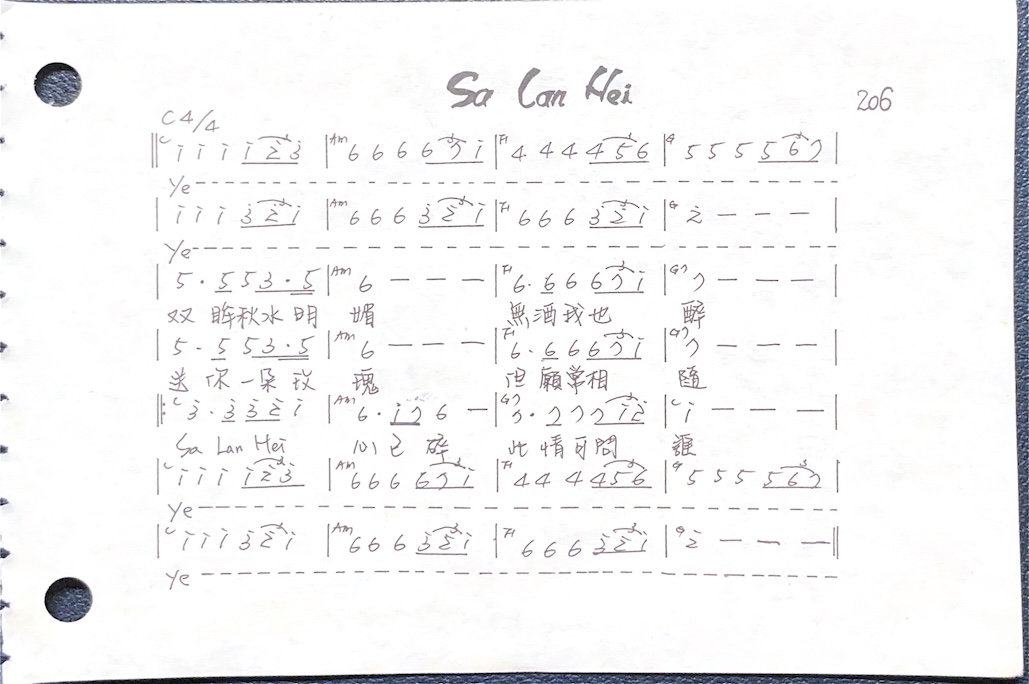 Sa Lan Hei
206
C 4/4
‖C i i i i 2̇ 3̇ |Am 6 6 6 6 7 i |F 4 4 4 4 5 6 |G 5 5 5 5 6 7 |
Ye
| i i i 3̇ 2̇ i |Am 6 6 6 3̇ 2̇ i |F 6 6 6 3̇ 2̇ i |G 2̇ — — — |
Ye
| 5 · 5 5 3 · 5 |Am 6 — — — |F 6 · 6 6 6 7 i |G7 7 — — — |
双眸秋水明 媚 無酒我也 醉
| 5 · 5 5 3 · 5 |Am 6 — — — |F 6 · 6 6 6 7 i |G7 7 — — — |
送你一朵玫 瑰 但願常相 隨
‖:C 3̇ · 3̇ 3̇ 2̇ i |Am 6 · i 7 6 — |G7 7 · 7 7 7 i 2̇ |C i — — — |
Sa Lan Hei 心已碎 此情可問 誰
|C i i i i 2̇ 3̇ |Am 6 6 6 6 7 i |F 4 4 4 4 5 6 |G 5 5 5 5 6 7 |
Ye
|C i i i 3̇ 2̇ i |Am 6 6 6 3̇ 2̇ i |F 6 6 6 3̇ 2̇ i |G 2̇ — — — ‖
Ye